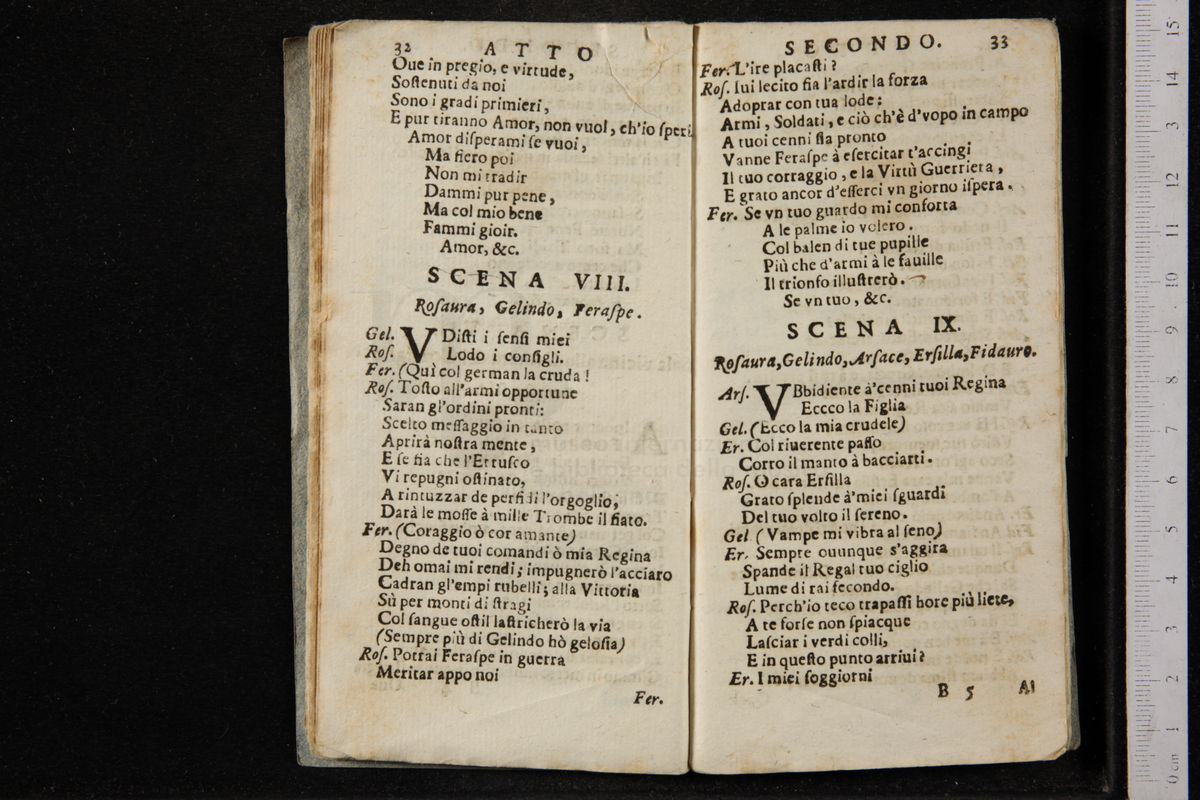 32 ATTO
Oue in pregio, e virtude,
Soſtenuti da noi
Sono i gradi primieri,
E pur tiranno Amor, non vuol, ch'io ſperi.
Amor diſperami ſe vuoi,
Ma fiero poi
Non mi tradir
Dammi pur pene,
Ma col mio bene
Fammi gioir.
Amor, &c.
SCENA VIII.
Roſaura, Gelindo, Feraſpe.
Gel. VDiſti i ſenſi miei
Roſ. Lodo i conſigli.
Fer. (Quì col german la cruda!
Roſ. Toſto all'armi opportune
Saran gl'ordini pronti:
Scelto meſſaggio in tanto
Aprirà noſtra mente,
E ſe fia che l'Etruſco
Vi repugni oſtinato,
A rintuzzar de perfidi l'orgoglio;
Darà le moſſe à mille Trombe il fiato.
Fer. (Coraggio ò cor amante)
Degno de tuoi comandi ò mia Regina
Deh omai mi rendi; impugnerò l'acciaro
Cadran gl'empi rubelli; alla Vittoria
Sù per monti di ſtragi
Col ſangue oſtil laſtricherò la via
(Sempre più di Gelindo hò geloſia)
Roſ. Potrai Feraſpe in guerra
Meritar appo noi
Fer.
SECONDO. 33
Fer. L'ire placaſti?
Roſ. Iui lecito fia l'ardir la forza
Adoprar con tua lode:
Armi, Soldati, e ciò ch'è d'vopo in campo
A tuoi cenni ſia pronto
Vanne Feraſpe à eſercitar t'accingi
Il tuo corraggio, e la Virtù Guerriera,
E grato ancor d'eſſerci vn giorno iſpera.
Fer. Se vn tuo guardo mi conforta
A le palme io volero.
Col balen di tue pupille
Più che d'armi à le fauille
Il trionfo illuſtrerò.
Se vn tuo, &c.
SCENA IX.
Roſaura, Gelindo, Arſace, Erſilla, Fidauro.
Arſ. VBbidiente à'cenni tuoi Regina
Eccco la Figlia
Gel. (Ecco la mia crudele)
Er. Col riuerente paſſo
Corro il manto à bacciarti.
Roſ. O cara Erſilla
Grato ſplende à'miei ſguardi
Del tuo volto il ſereno.
Gel (Vampe mi vibra al ſeno)
Er. Sempre ouunque s'aggira
Spande il Regal tuo ciglio
Lume di rai fecondo.
Roſ. Perch'io teco trapaſſi hore più liete,
A te forſe non ſpiacque
Laſciar i verdi colli,
E in queſto punto arriui?
Er. I miei ſoggiorni
B 5 Al